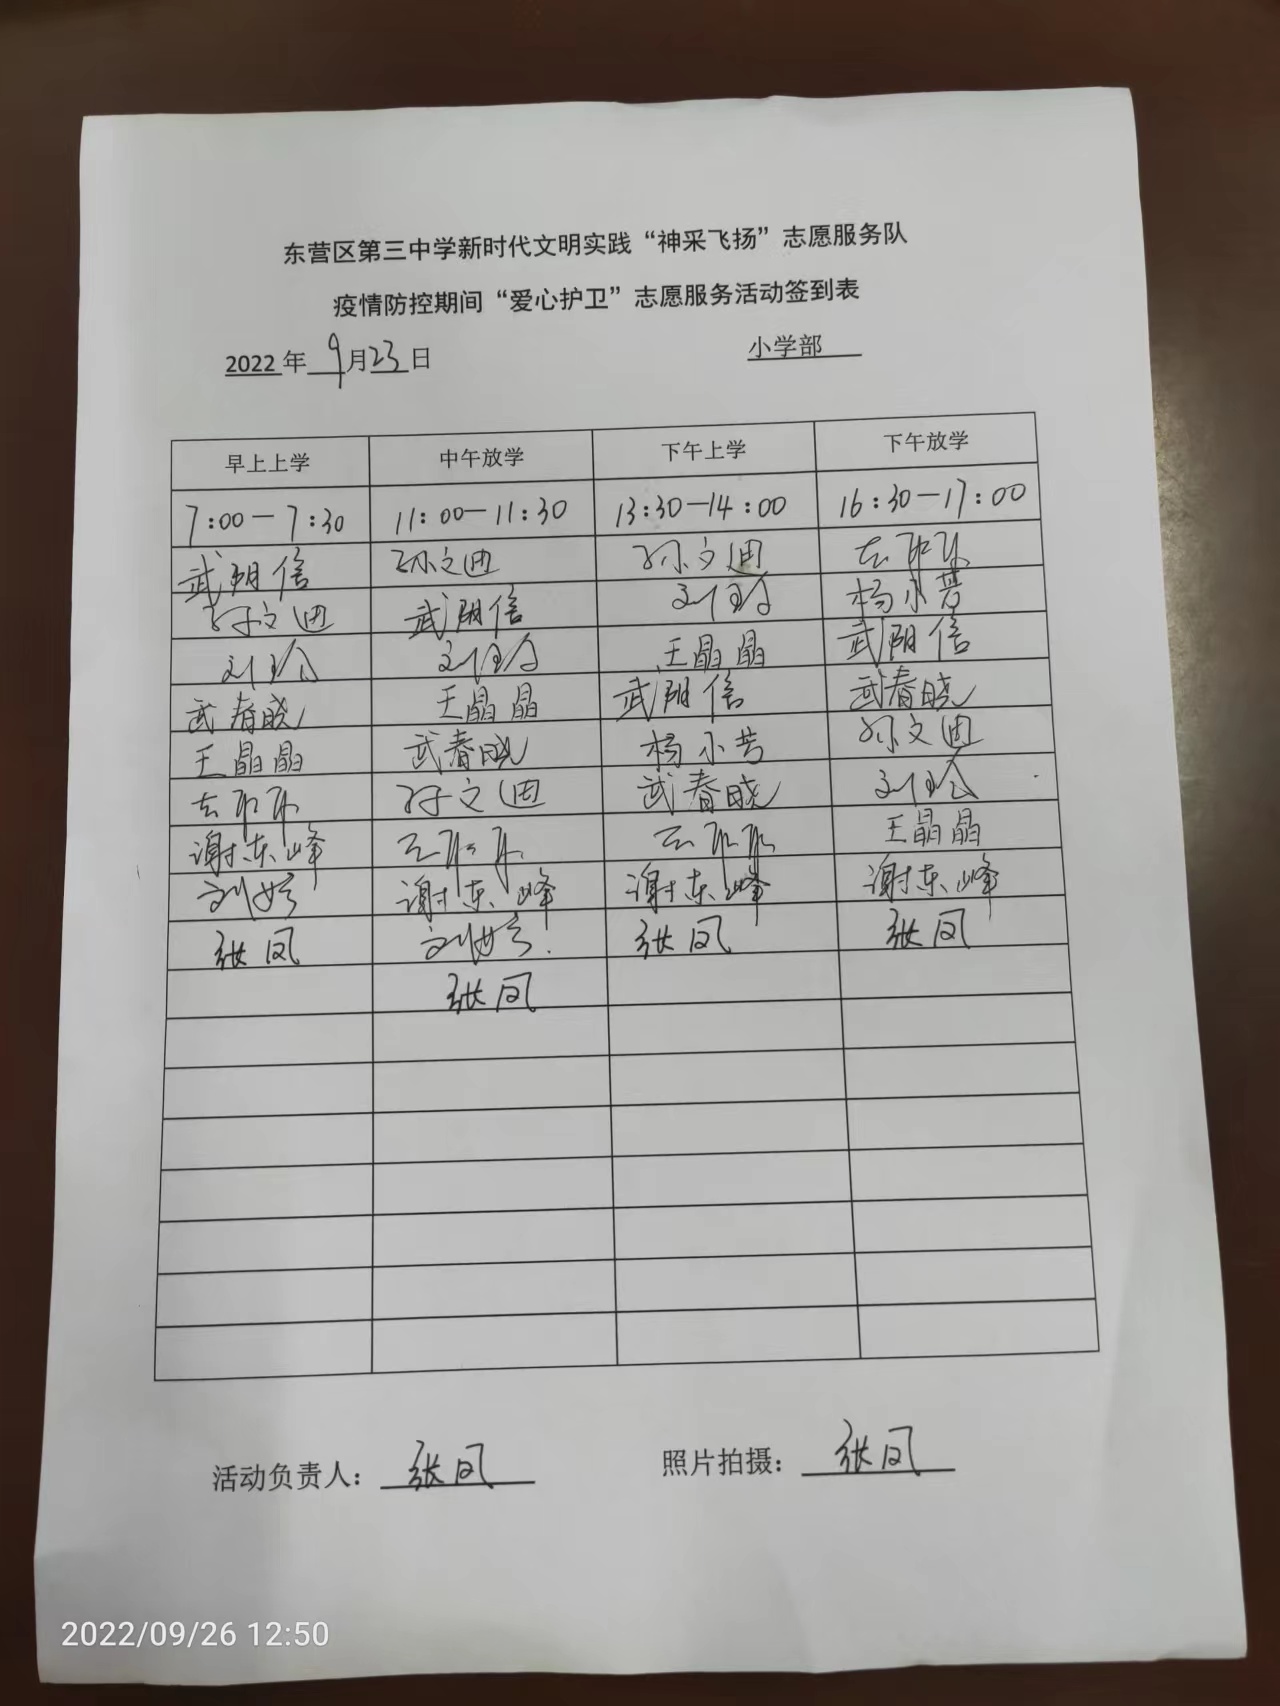 东营区第三中学新时代文明实践“神采飞扬”志愿服务队
疫情防控期间“爱心护卫”志愿服务活动签到表
2022年 9月23日 小学部
早上上学 中午放学 下午上学 下午放学
7:00-7:30 11:00-11:30 13:30-14:00 16:30-17:00
武朋信 孙文迪 孙文迪
孙文迪 武朋信 刘玲 杨小芳
刘玲 刘玲 王晶晶 武朋信
武春晓 王晶晶 武朋信 武春晓
王晶晶 武春晓 杨小芳 孙文迪
孙文迪 武春晓 刘玲
谢东峰 王晶晶
谢东峰 谢东峰 谢东峰
张凤 张凤 张凤
张凤
活动负责人: 张凤 照片拍摄: 张凤
2022/09/26 12:50